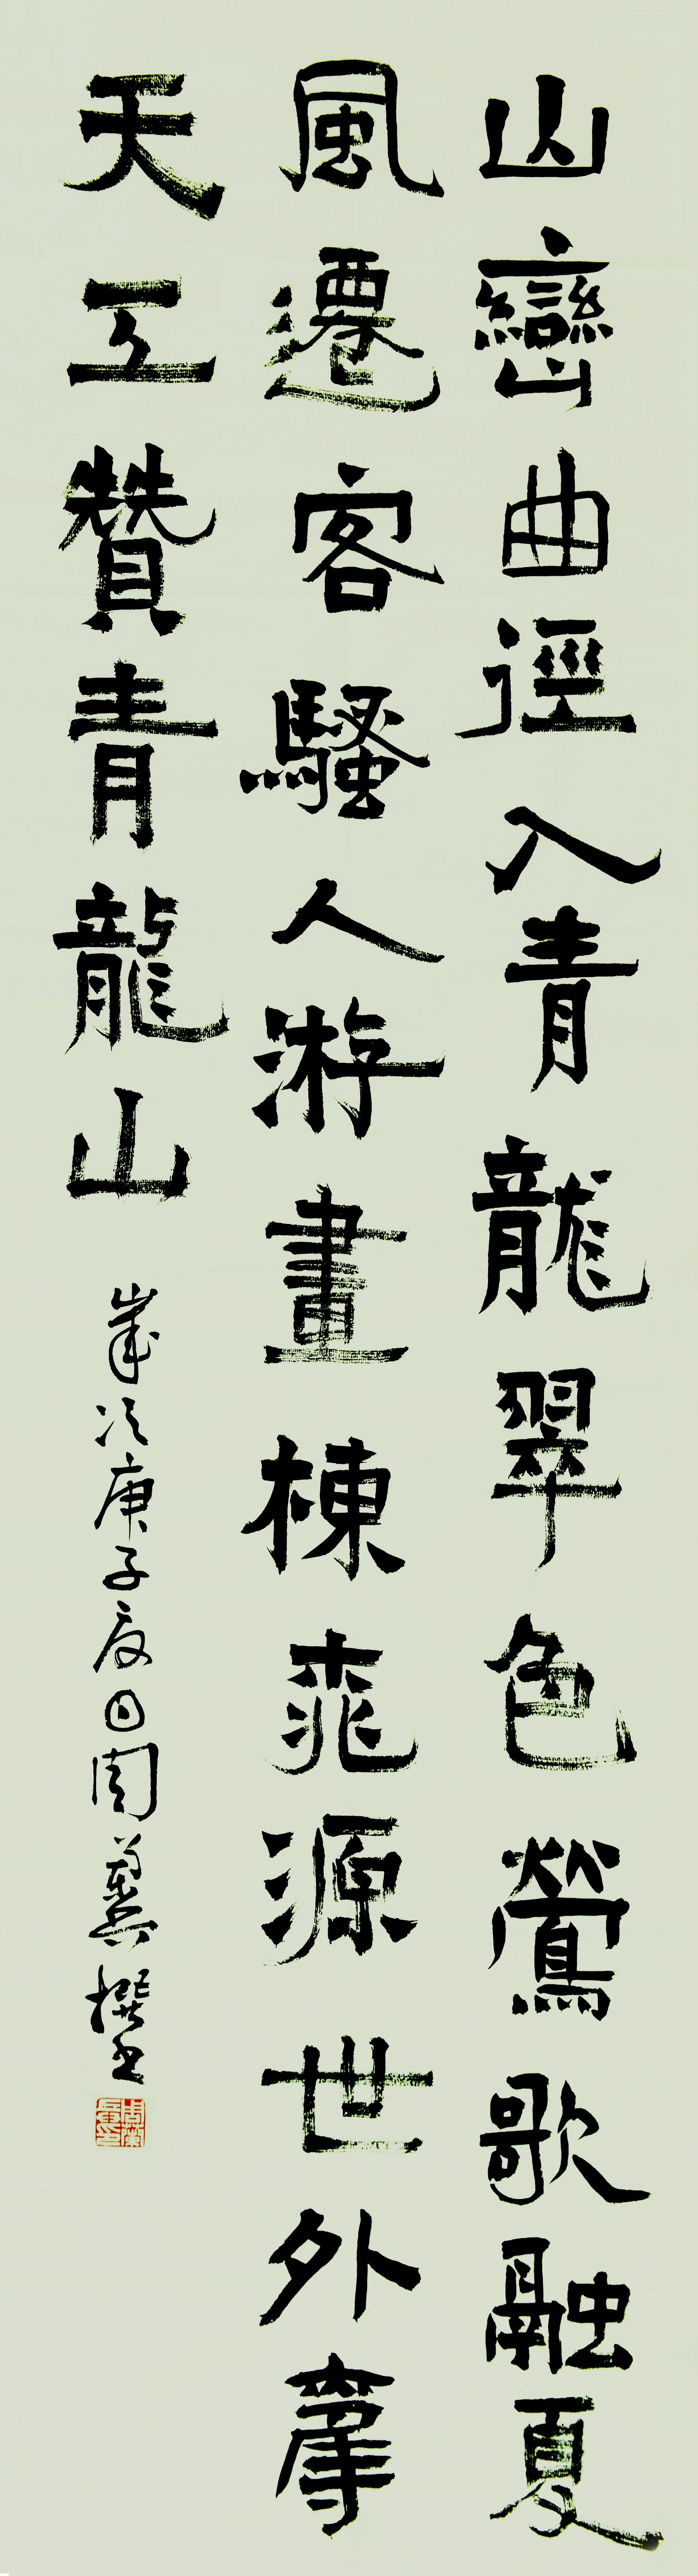 山巒曲徑入青龍翠色鶯歌融夏
風遷客騷人游畫棟桃源世外奪
天工贊青龍山
歲次庚子夏日周撰書